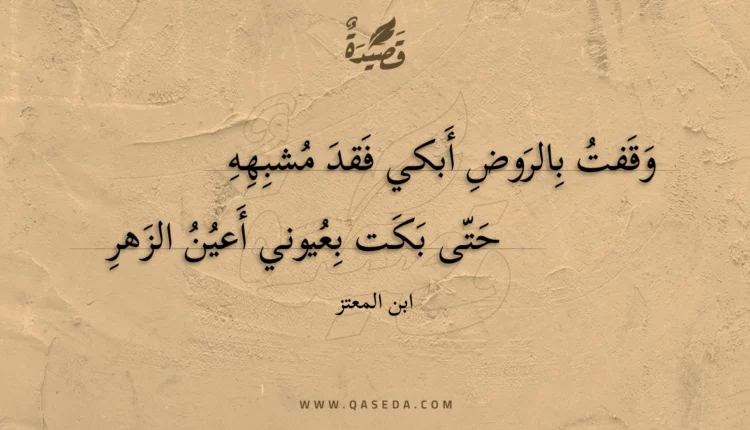 قَصِيْدَةٌ
وَقَفتُ بِالرَوضِ أَبكي فَقدَ مُشبِهِهِ
حَتّى بَكَت بِعُيوني أَعيُنُ الزَهرِ
ابن المعتز
WWW.QASEDA.COM